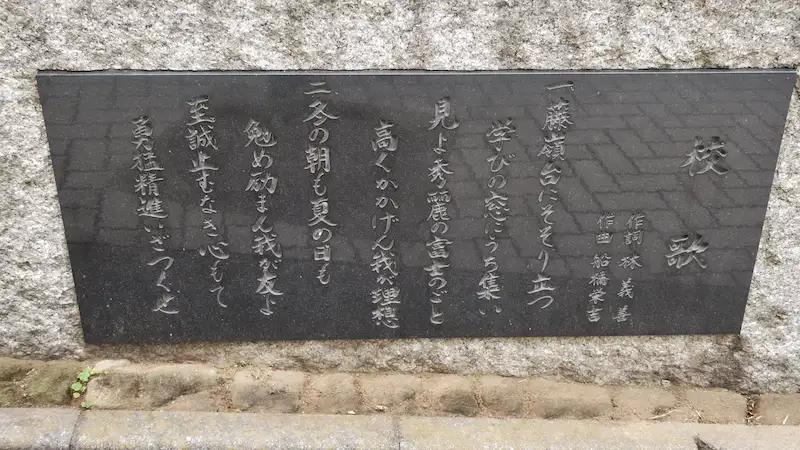 校歌
作詞 林義善
作曲 船橋栄吉
一 藤嶺台にそそり立つ
学びの窓にうち集い
見よ秀麗の富士のごと
高くかかげん我が理想
二 冬の朝も夏の日も
勉め励まん我が友よ
至誠止むなき心もて
勇猛精進いざつくせ